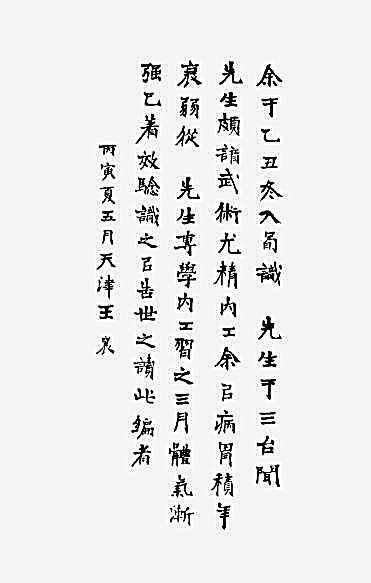 余于乙丑冬入蜀識 先生于三台聞
先生頗諳武術尤精内工余㠯病胃積年
衰弱從 先生專學内工習之三月體氣漸
强已着效驗識之㠯告世之讀此編者
丙寅夏五月天津王襄